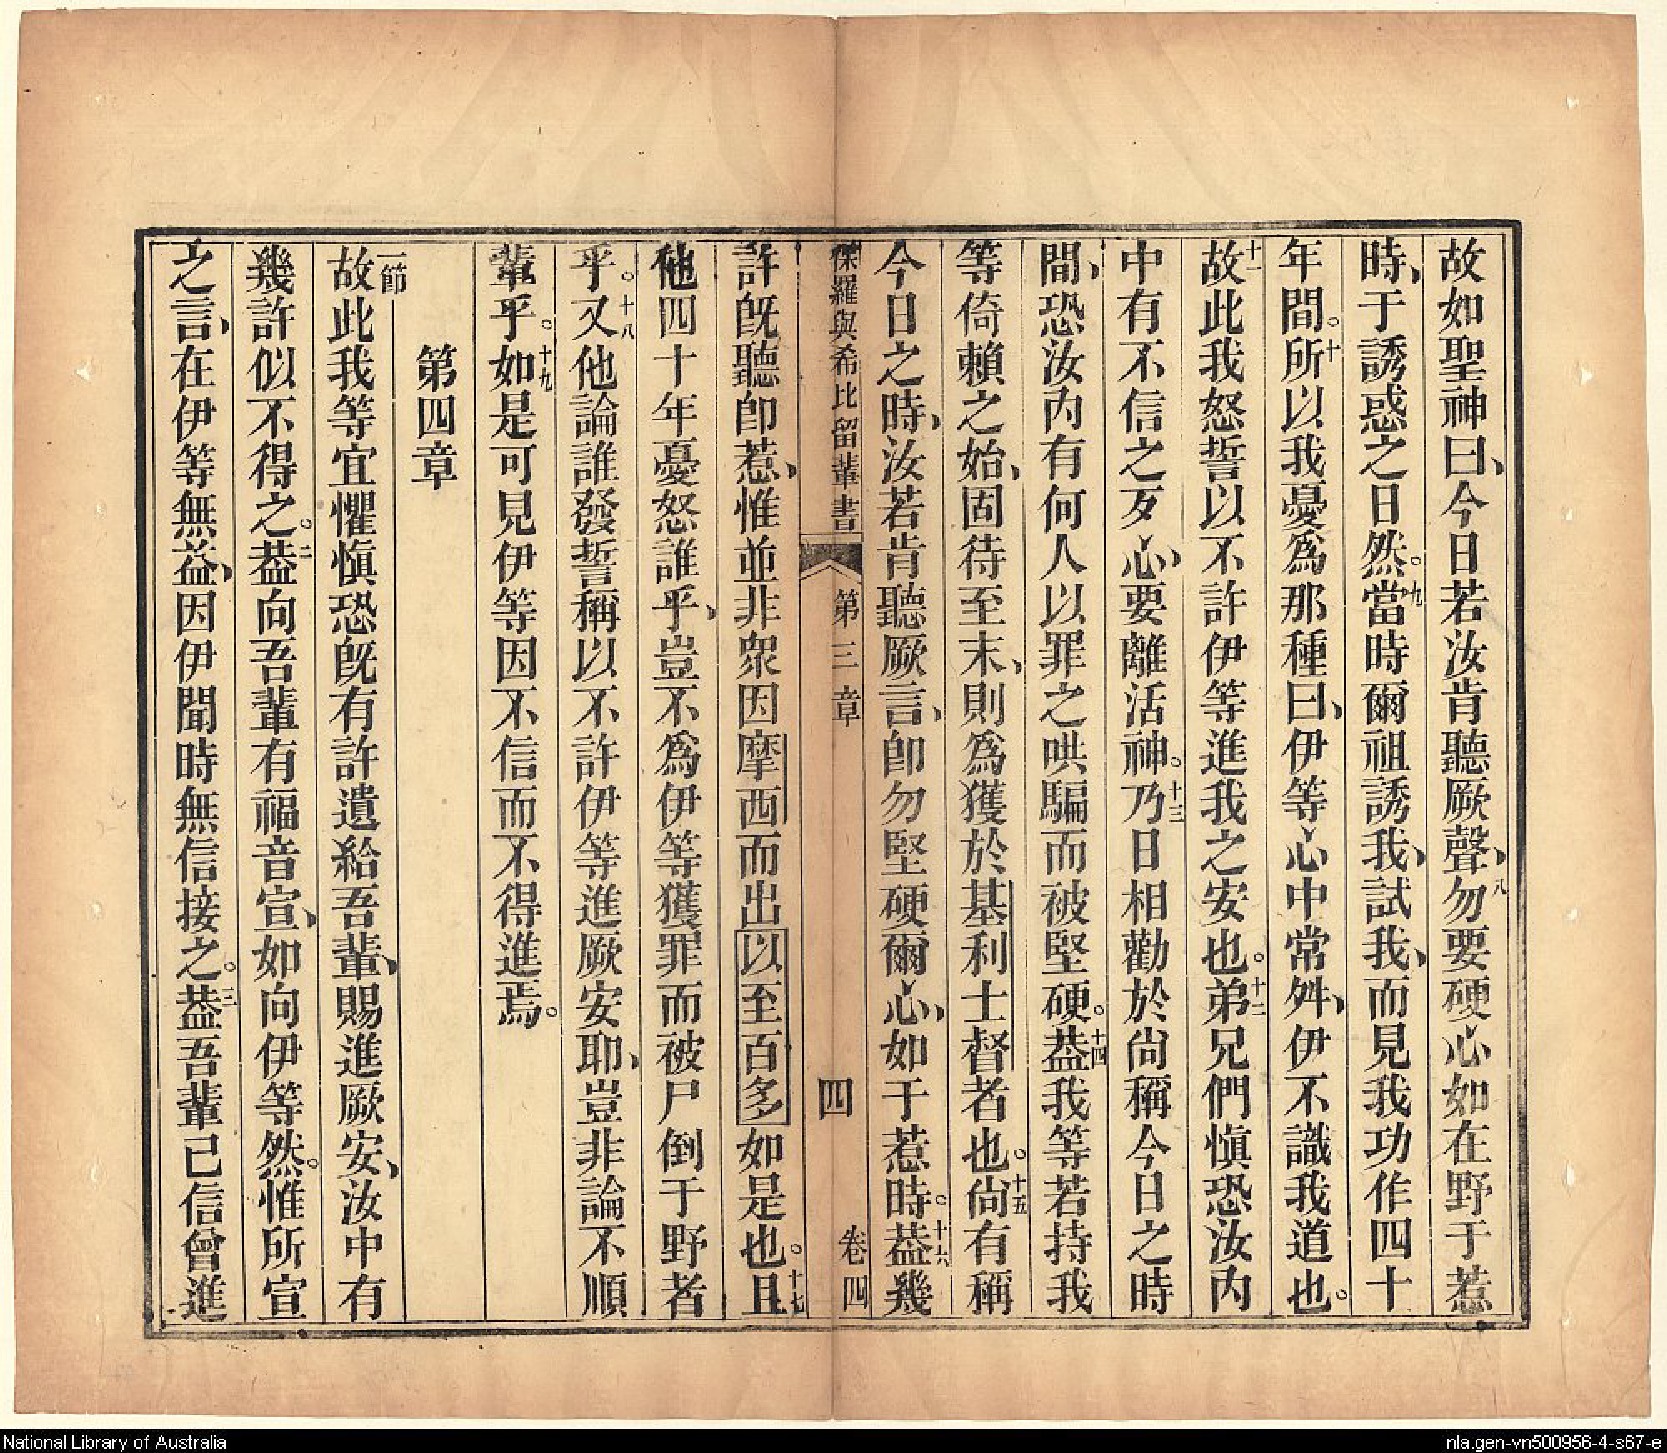 故如聖神曰、今日若汝肯聽厥聲、八勿要硬心如在野于惹
時、于誘惑之日然。九當時爾祖誘我、試我、而見我功作四十
年間。十所以我憂為那種曰、伊等心中常舛、伊不識我道也。
十一故此我怒誓以不許伊等進我之安也。十二弟兄們慎恐汝內
中有不信之歹心、要離活神。十三乃日相勸於尚稱今日之時
間、恐汝內有何人以罪之哄騙而被堅硬。十四葢我等若持我
等倚賴之始、固待至末、則為獲於基利士督者也。十五尚有稱
今日之時、汝若肯聽厥言、即勿堅硬爾心、如于惹時。十六葢幾
羅與希比留輩書 第三章 四 卷四
許既聽即惹、惟並非眾因摩西而出以至百多如是也。十七且
他四十年憂怒誰乎、豈不為伊等獲罪而被尸倒于野者
乎。十八又他論誰發誓稱以不許伊等進厥安耶、豈非論不順
輩乎。十九如是可見伊等因不信而不得進焉。
第四章
一節故此我等宜懼慎恐既有許遺給吾輩、賜進厥安、汝中有
幾許似不得之。二葢向吾輩有福音宣、如向伊等然。惟所宣
之言、在伊等無益、因伊聞時無信接之。三葢吾輩已信曾進
National Library of Australia
nla.gen-vn500956-4-s67-e